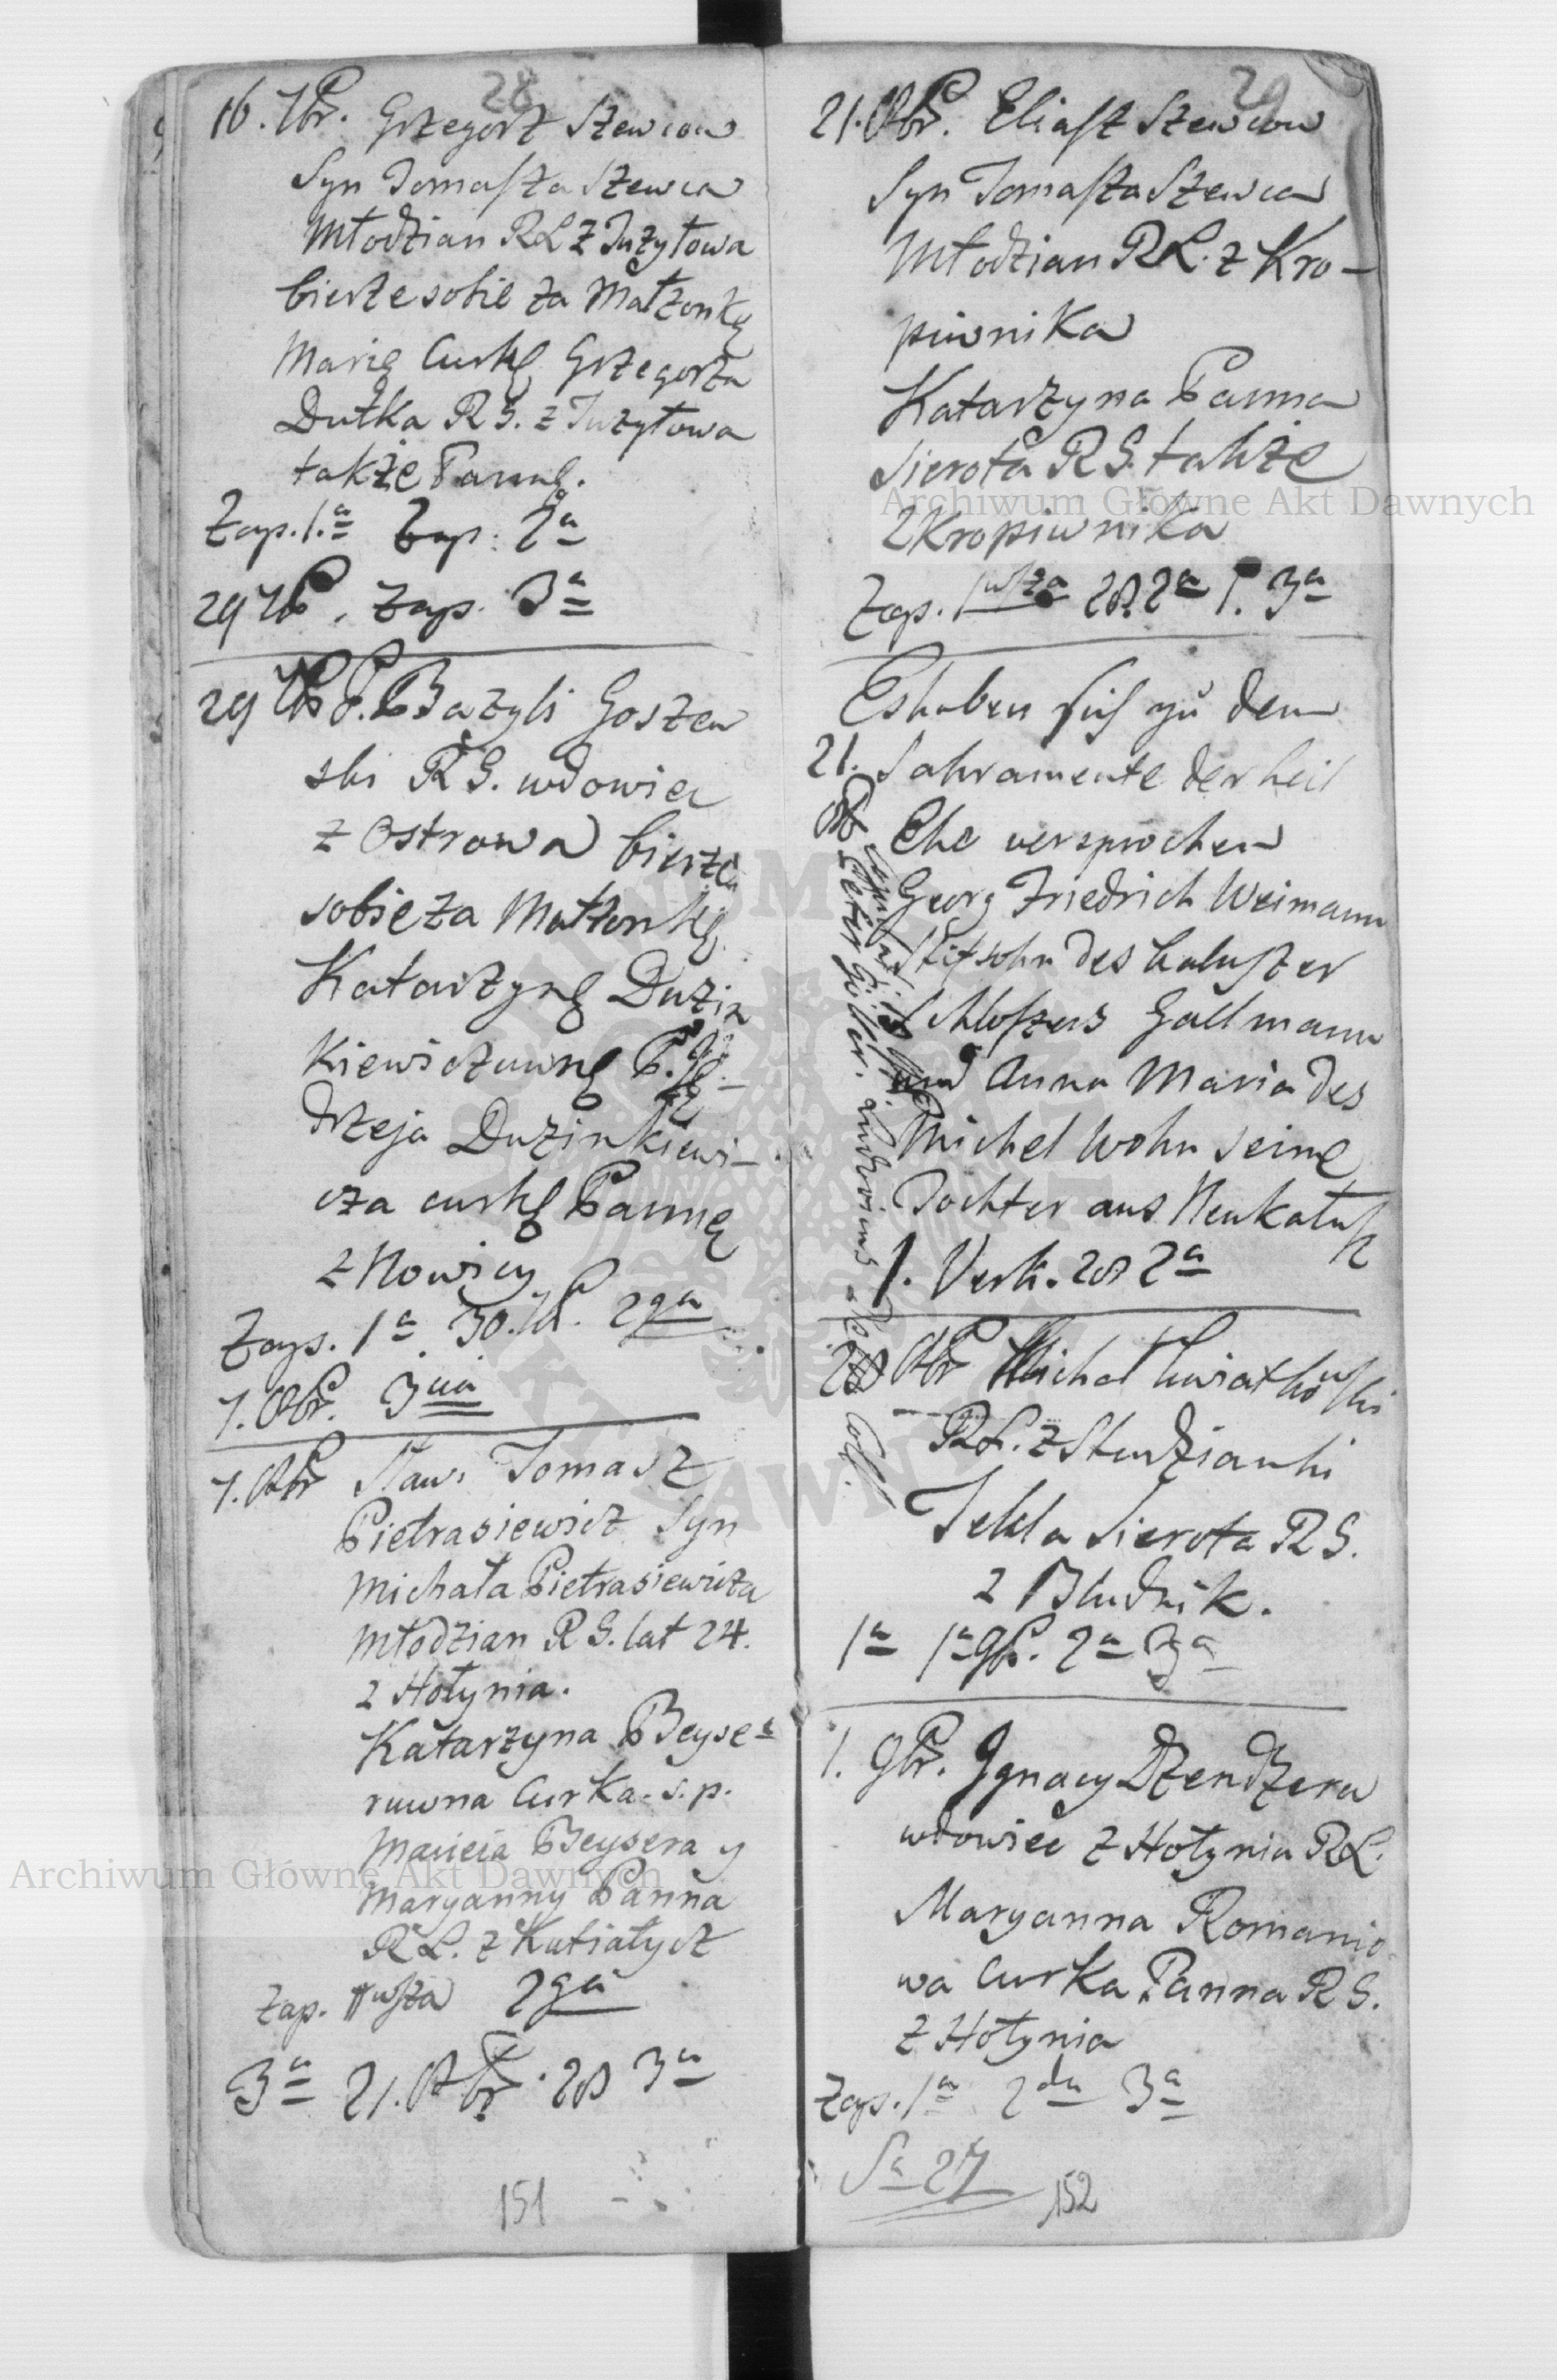 28
16. 7br. Grzegorz Szewcow
Syn Tomasza Szewca
Młodzian RL z Tużyłowa
bierze sobie za Małżonkę
Marię Curkę Grzegorza
Dutka RG. z Tużyłowa
także Pannę.
Zap. 1.a Zap: 2a
29 7br. Zap. 3a
29 7br P. Bazyli Goszew
ski RG. wdowiec
z Ostrowa bierze
sobie za Małżonkę
Katarzynę Duzin
kiewiczuwnę P. Ję-
drzeja Duzinkiewi-
cza curkę Pannę
z Nowicy
Zap. 1a 30. 7br. 2ga
7. 8br. 3cia
7. 8br Sław. Tomasz
Pietrasiewicz Syn
Michała Pietrasiewicza
Młodzian RG. lat 24.
z Hołynia.
Katarzyna Beyse-
ruwna Curka s.p.
Macieia Beysera y
Maryanny Panna
RL. z Kutiatycz
Zap. 1wsza 2ga
3a 21. 8br. 28 3a
151
29
21. 8br. Eliasz Szewcow
Syn Tomasza Szewca
Młodzian RL. z Kro-
piwnika
Katarzyna Panna
Sierota RG. także
z Kropiwnika
Zap. 1wsza 28 2a 1. 3a
Es haben sich zu dem
21. Sakramente der heil
8br Ehe versprochen
Georg Friedrich Weimann
Stifsohn des Kaluszer
Schloszers Gallmann
und Anna Maria des
Michel Wohn seine
Tochter aus Neukalusz
1. Verk. 28 2a
28 8br Michal Kwiatkowski
RL. z Studzianki
Tekla Sierota RG.
z Bludnik.
1a 1a 9br. 2a 3a
1. 9br. Ignacy Dzendzera
wdowiec z Hołynia RL.
Maryanna Romanio-
wa Curka Panna RG.
z Hołynia
Zap. 1a 2da 3a
Sa 27
152
Archiwum Główne Akt Dawnych
Archiwum Główne Akt Dawnych